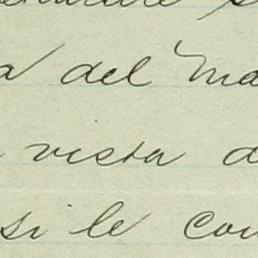 a del Ma
vista d
si le con